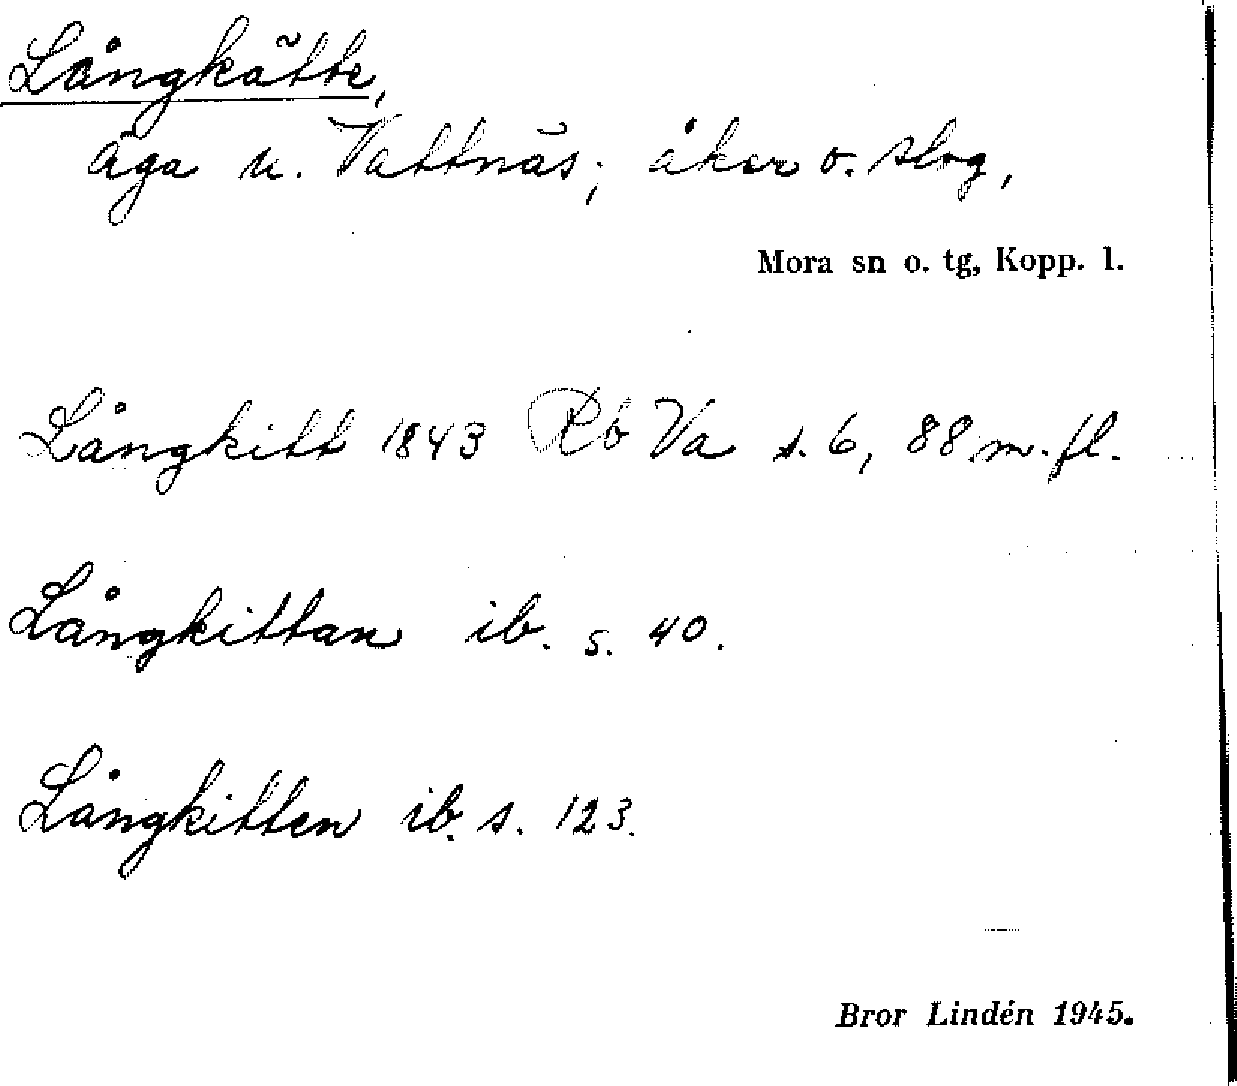 Långkätte,
äga u. Vattnäs; åker o. slog,
Mora sn o. tg, Kopp. l.
Långkitt 1843 Rb Va s. 6, 88 m. fl.
Långkittan ib. s. 40.
Långkitten ib. s. 123.
Bror Lindén 1945.